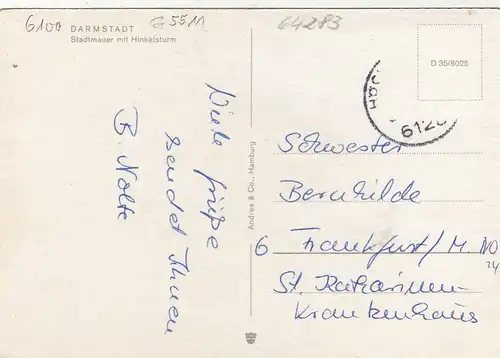 6100
DARMSTADT
Stadtmauer mit Hinkelsturm
G 5511
64283
D 35/8025
6120
Viele Grüße
sendet Ihnen
B. Nolte
Andres & Co., Hamburg
Schwester
Bernhilde
6 Frankfurt/M. NO
14
St. Katharinen-
Krankenhaus